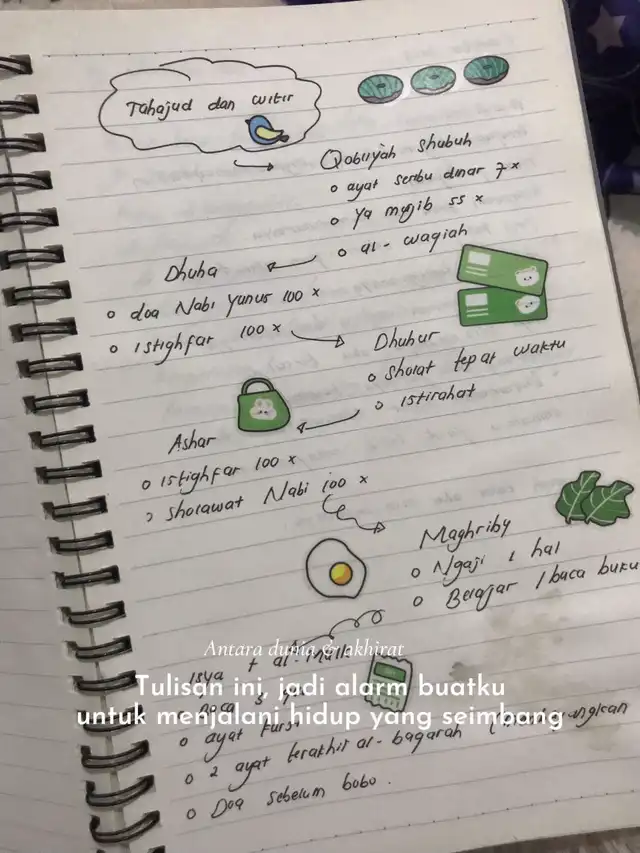 Tahajud dan witir
Qobliyah shubuh
o ayat seribu dinar 7x
o ya mujib 55 x
o al-waqiah
Dhuha
o doa Nabi yunus 100 x
o istighfar 100 x
Dhuhur
o sholat tepat waktu
o istirahat
Ashar
o istighfar 100 x
o sholawat Nabi 100 x
Maghriby
o Ngaji 1 hal
o Belajar / baca buku
Antara dunia & akhirat
Isya + al-Mulk
Tulisan ini, jadi alarm buatku
untuk menjalani hidup yang seimbang
o ayat kursi
o 2 ayat terakhir al-baqarah
o Doa sebelum bobo.